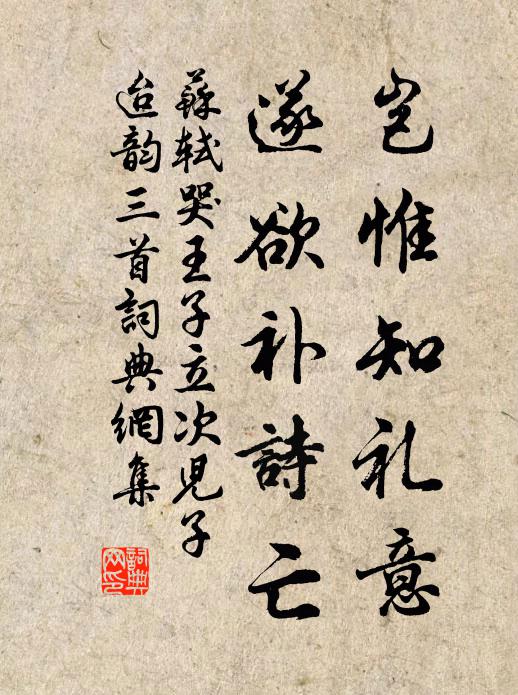 岂惟知礼意
遂欲补詩亡
蘇軾哭王子立次児子
迨韵三首詞典網集
詞典网印